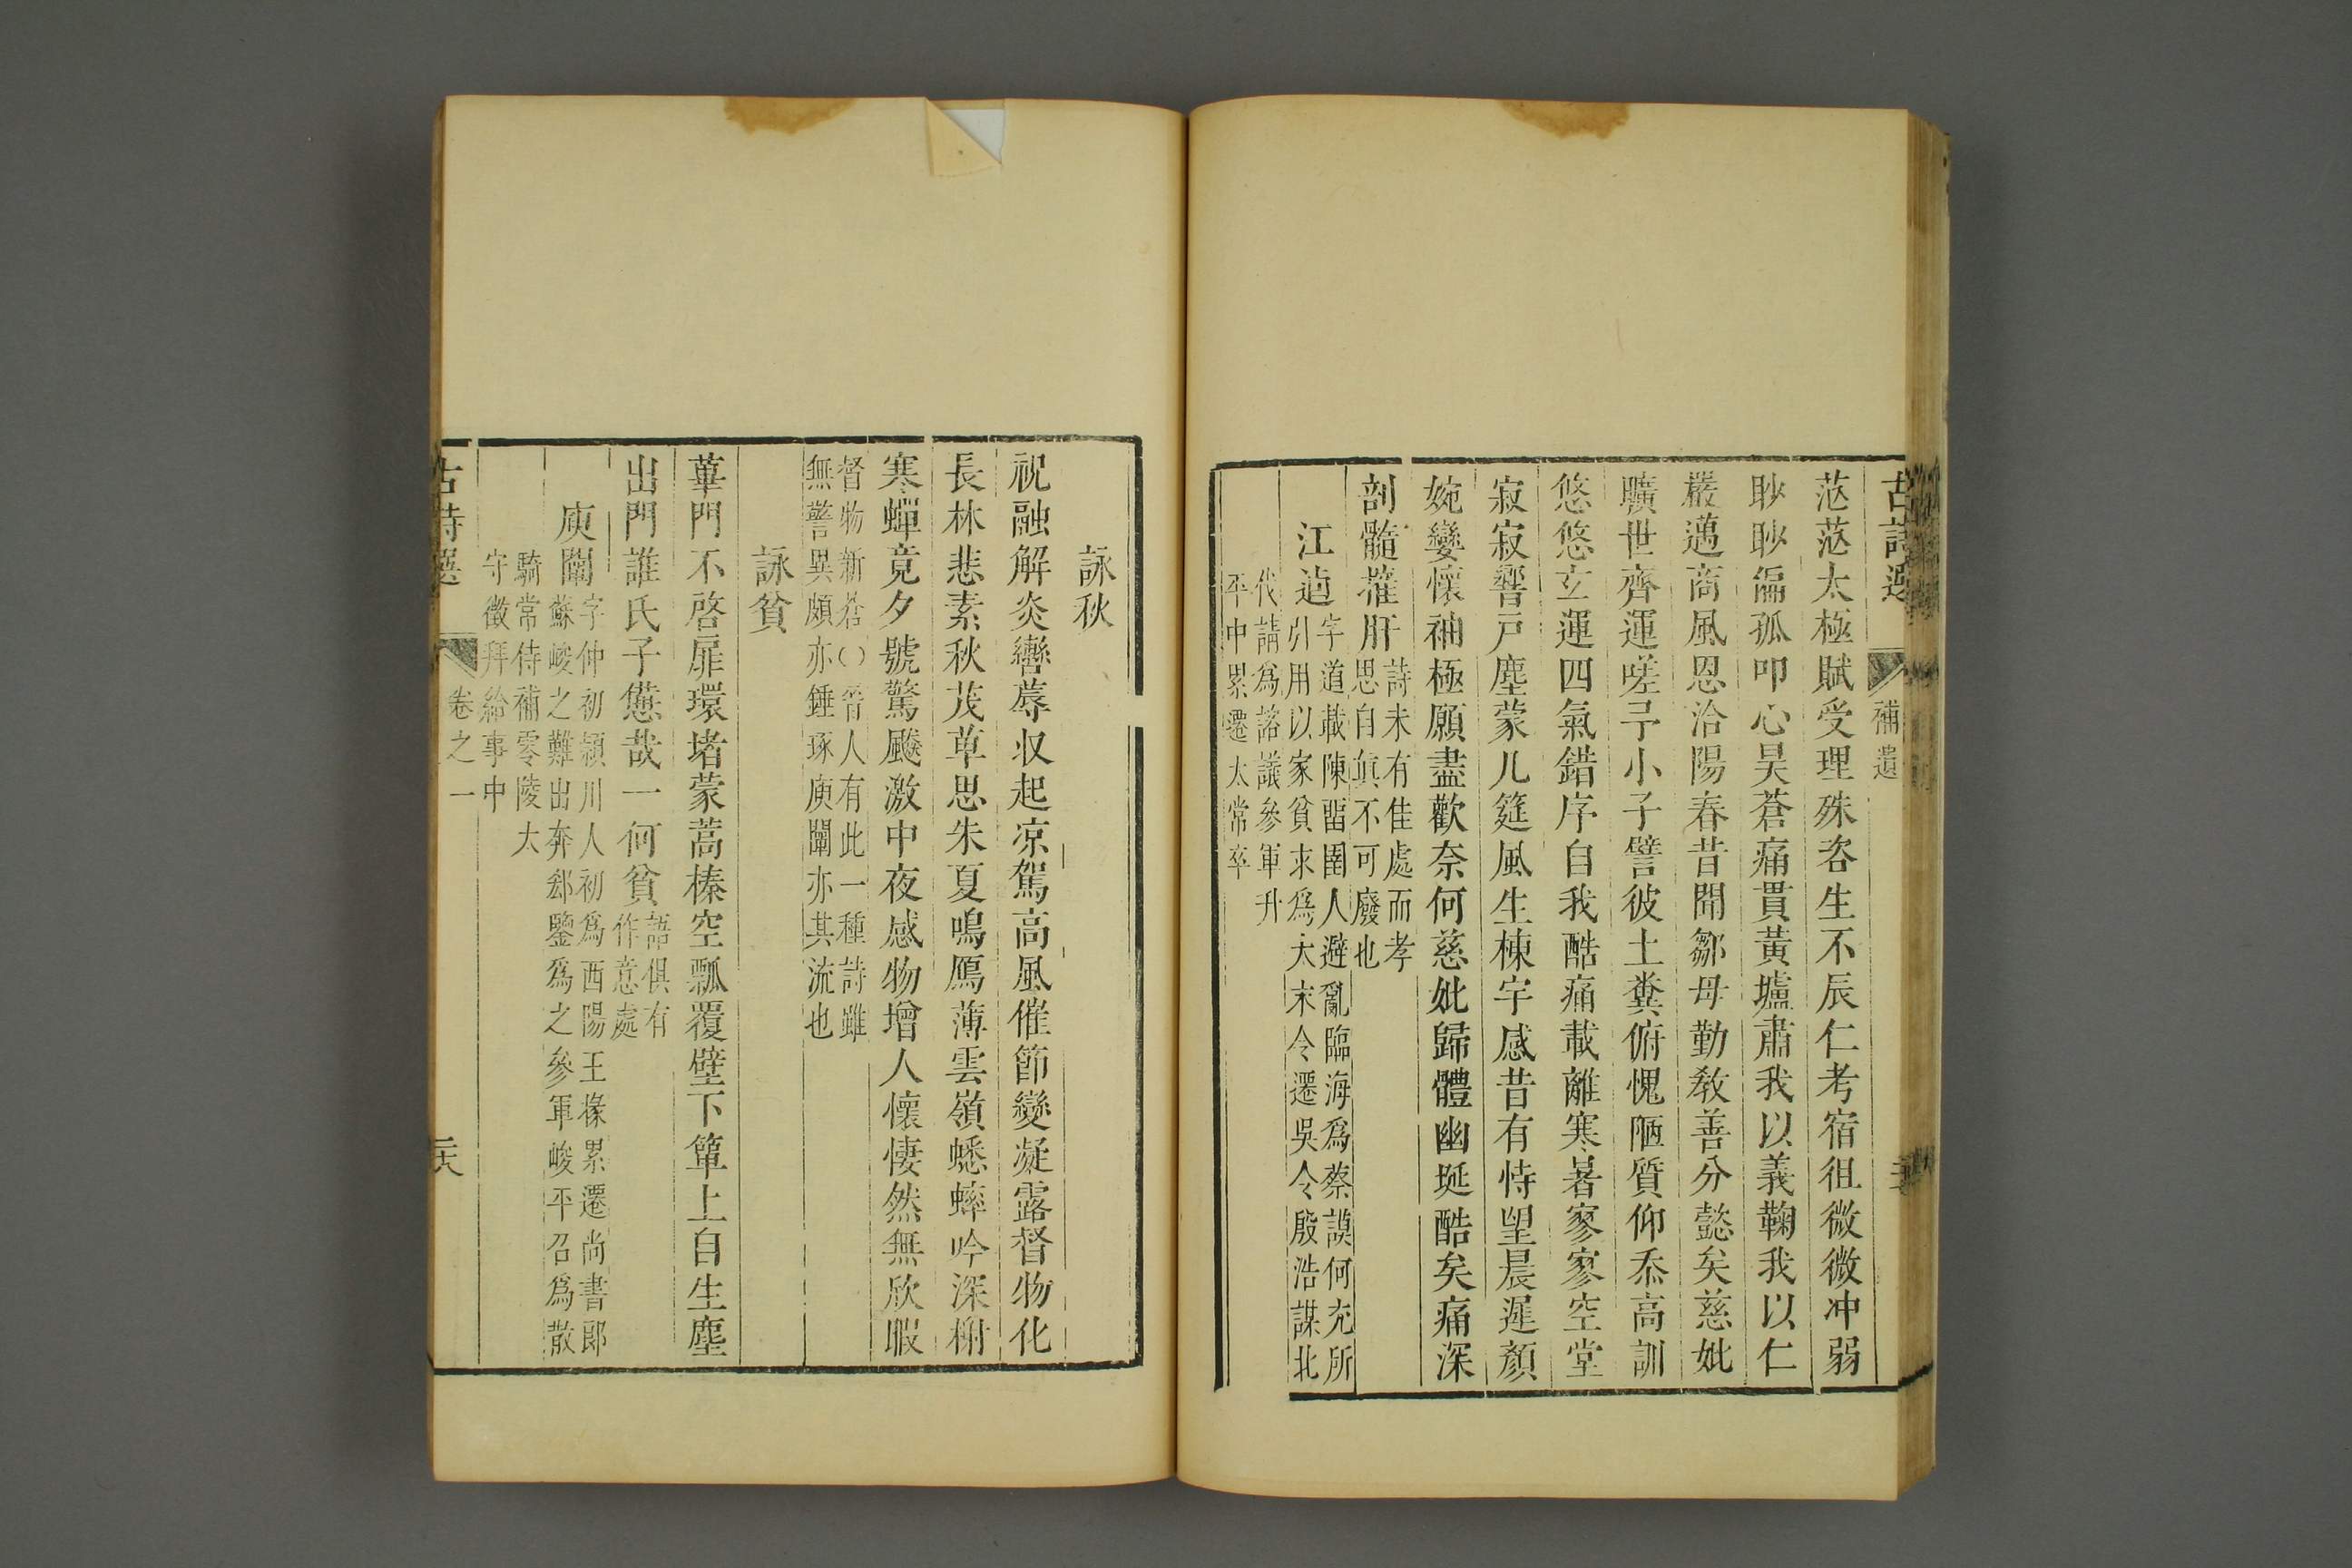 古詩選 補遺
茫茫太極賦受理殊咨生不辰仁考宿徂微微冲弱
眇眇偏孤叩心昊蒼痛貫黃壚肅我以義鞠我以仁
嚴邁商風恩洽陽春昔聞鄒母勤教善分懿矣慈妣
曠世齊運嗟予小子譬彼土糞俯愧陋質仰忝高訓
悠悠玄運四氣錯序自我酷痛載離寒暑寥寥空堂
寂寂響戸塵蒙几筵風生棟宇感昔有恃望晨遲顏
婉孌懷袖極願盡歡奈何慈妣歸體幽埏酷矣痛深
剖髓摧肝
詩未有佳處而孝
思自眞不可廢也
江逌
字道載陳畱圉人避亂臨海為蔡謨何充所
引用以家貧求為大末令遷吳令殷浩謀北
代請為諮議參軍升
平中累遷太常卒
詠秋
祝融解炎轡蓐収起凉駕高風催節變凝露督物化
長林悲素秋茂草思朱夏鳴鴈薄雲嶺蟋蟀吟深榭
寒蟬竟夕號驚飈激中夜感物增人懷悽然無欣暇
督物新甚〇晉人有此一種詩雖
無警異頗亦錘琢庾闡亦其流也
詠貧
蓽門不啓扉環堵蒙蒿榛空瓢覆壁下簞上自生塵
出門誰氏子憊哉一何貧
語俱有
作意處
庾闡
字仲初潁川人初為西陽王掾累遷尚書郎
蘇峻之難出奔郄鑒為之參軍峻平召為散
騎常侍補零陵太
守徵拜給事中
古詩選 卷之一